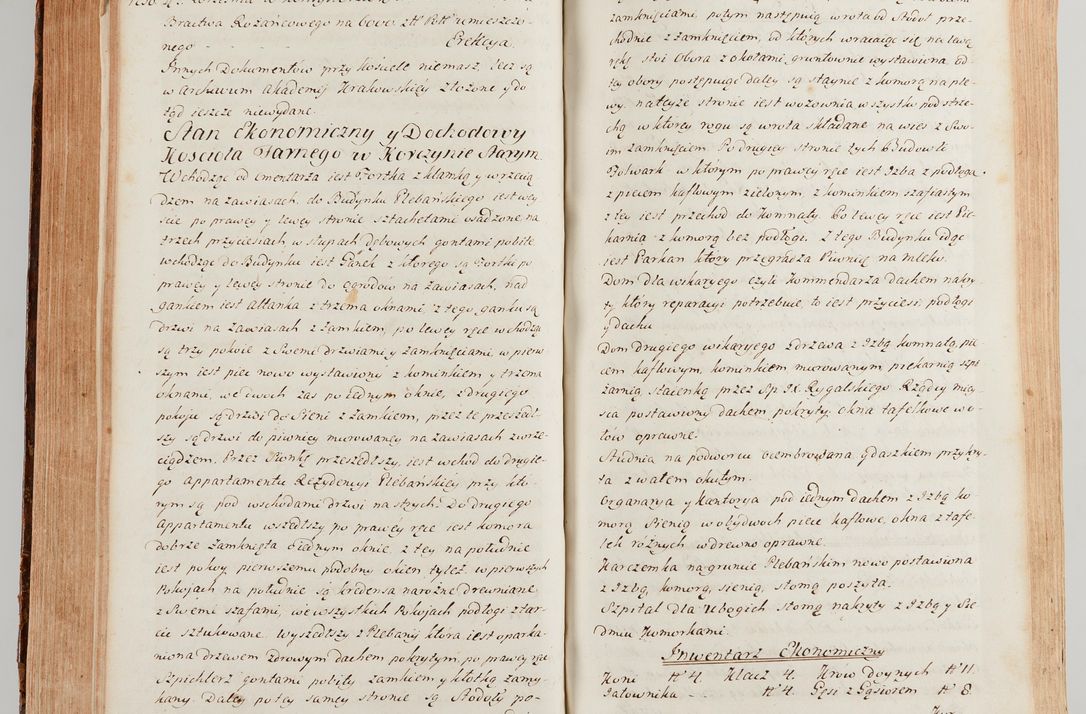 Bractwa Rozańcowego na 6000: zł Pol: umieszczo-
nego - - - Erekcya.
Jnnych Dokumentow przy kościele niemasz, lecz są
w Archiwum Akademij Krakowskiey złożone y do
tąd ieszcze niewydane.
Stan Ekonomiczny y Dochodowy
Kościoła Farnego w Korczynie Starym
Wchodząc od cmentarza iest Fortka z klamką y wrzecią
dzem na zawiasach, do Budynku Plebańskiego iest wey
ście po prawey y lewey stronie sztachetami osadzone na
trzech przyciesiach w słupach dębowych gontami pobite
wchodząc do Budynku iest Ganek z ktorego są Fortki po
prawey y lewey stronie do ogrodow na zawiasach, nad
gankiem iest altanka z trzema oknami, z tego ganku są
drzwi na zawiasach z zamkiem, po lewey ręce wchodząc
są trzy pokoie z swemi drzwiami y zamknięciami, w pierw
szym iest piec nowo wystawiony z kominkiem y trzema
oknami, we dwoch zas po iednym oknie, z drugiego
pokoju są drzwi do Sieni z zamkiem, przez te przeszedł-
szy są drzwi do piwnicy murowaney na zawiasach z wrze-
ciądzem. Przez Sionkę przeszedłszy, iest wchod do drugie-
go appartamentu Rezydencyi Plebańskiey przy kto-
rym są pod wschodami drzwi na strych. Do drugiego
Appartamentu wszedłszy po prawey ręce iest komora
dobrze zamknięta o iednym oknie, z tey na południe
iest pokoy pierwszemu podobny okien tyleż, w pierwszych
Pokojach na południe są kredensa narożne drewniane
z swemi szafami, we wszystkich Pokojach podłogi z tar-
cic sztukowane. Wyszedłszy z Plebanij ktora iest oparka-
niona drzewem zdrowym dachem pokrytym, po prawey ręce
Szpichlerz gontami pobity zamkiem y kłotką zamy-
kany. Daley po tey samey stronie są Stodoły po-
zamknięciami, potym następuią wrota od Stodoł prze-
chodnie z zamknięciem, od ktorych wracaiąc się na lewą
rękę stoi Obora z okołami gruntownie wystawiona, od
tey obory postępuiąc daley są staynie z komorą na ple-
wy. na teyże stronie iest wozownia wszystko pod strze-
chą w ktorey rogu są wrota składane na wieś z Swo-
im zamknięciem. Po drugiey stronie tych Budowli
Folwark w ktorym po prawey ręce iest Jzba z podłogą,
z piecem kaflowym zielonym, z kominkiem szafiastym
z tey iest przechod do Komnaty. Po lewey ręce iest Pie
karnia z komorą bez podłogi. Z tego Budynku idąc
iest Parkan ktory przegradza Piwnicę na mleko.
Dom dla wikaryego czyli Kommendarza dachem nakry-
ty ktory reparacyi potrzebuie, to iest przyciesi podłogi
y dachu.
Dom drugiego wikaryego z drzewa z Jzbą komnatą, pie
cem kaflowym, kominkiem murowanym piekarnią szpi
żarnią, staienką przez Sp JX. Rygalskiego Rządcy miey-
sca postawiony dachem pokryty. okna tafelkowe w o-
łow oprawne.
Studnia na podworcu ocembrowana y daszkiem przykry-
ta z wałem okutym.
Organarya y Kantorya pod iednym dachem z Jzbą ko-
morą Sienią w obydwoch piece kaflowe, okna z tafe-
lek rożnych w drewno oprawne.
Karczemka na gruncie Plebańskim nowo postawiona
z Jzbą, komorą, sienią, słomą poszyta.
Szpital dla Ubogich słomą nakryty z Jzbą y Sie
dmiu Komorkami.
Jnwentarz Ekonomiczny
Koni N 4. Klacz 4. Krow doynych N 11.
Jałownika - - N 4. Gęsi z Gąsiorem N 8.